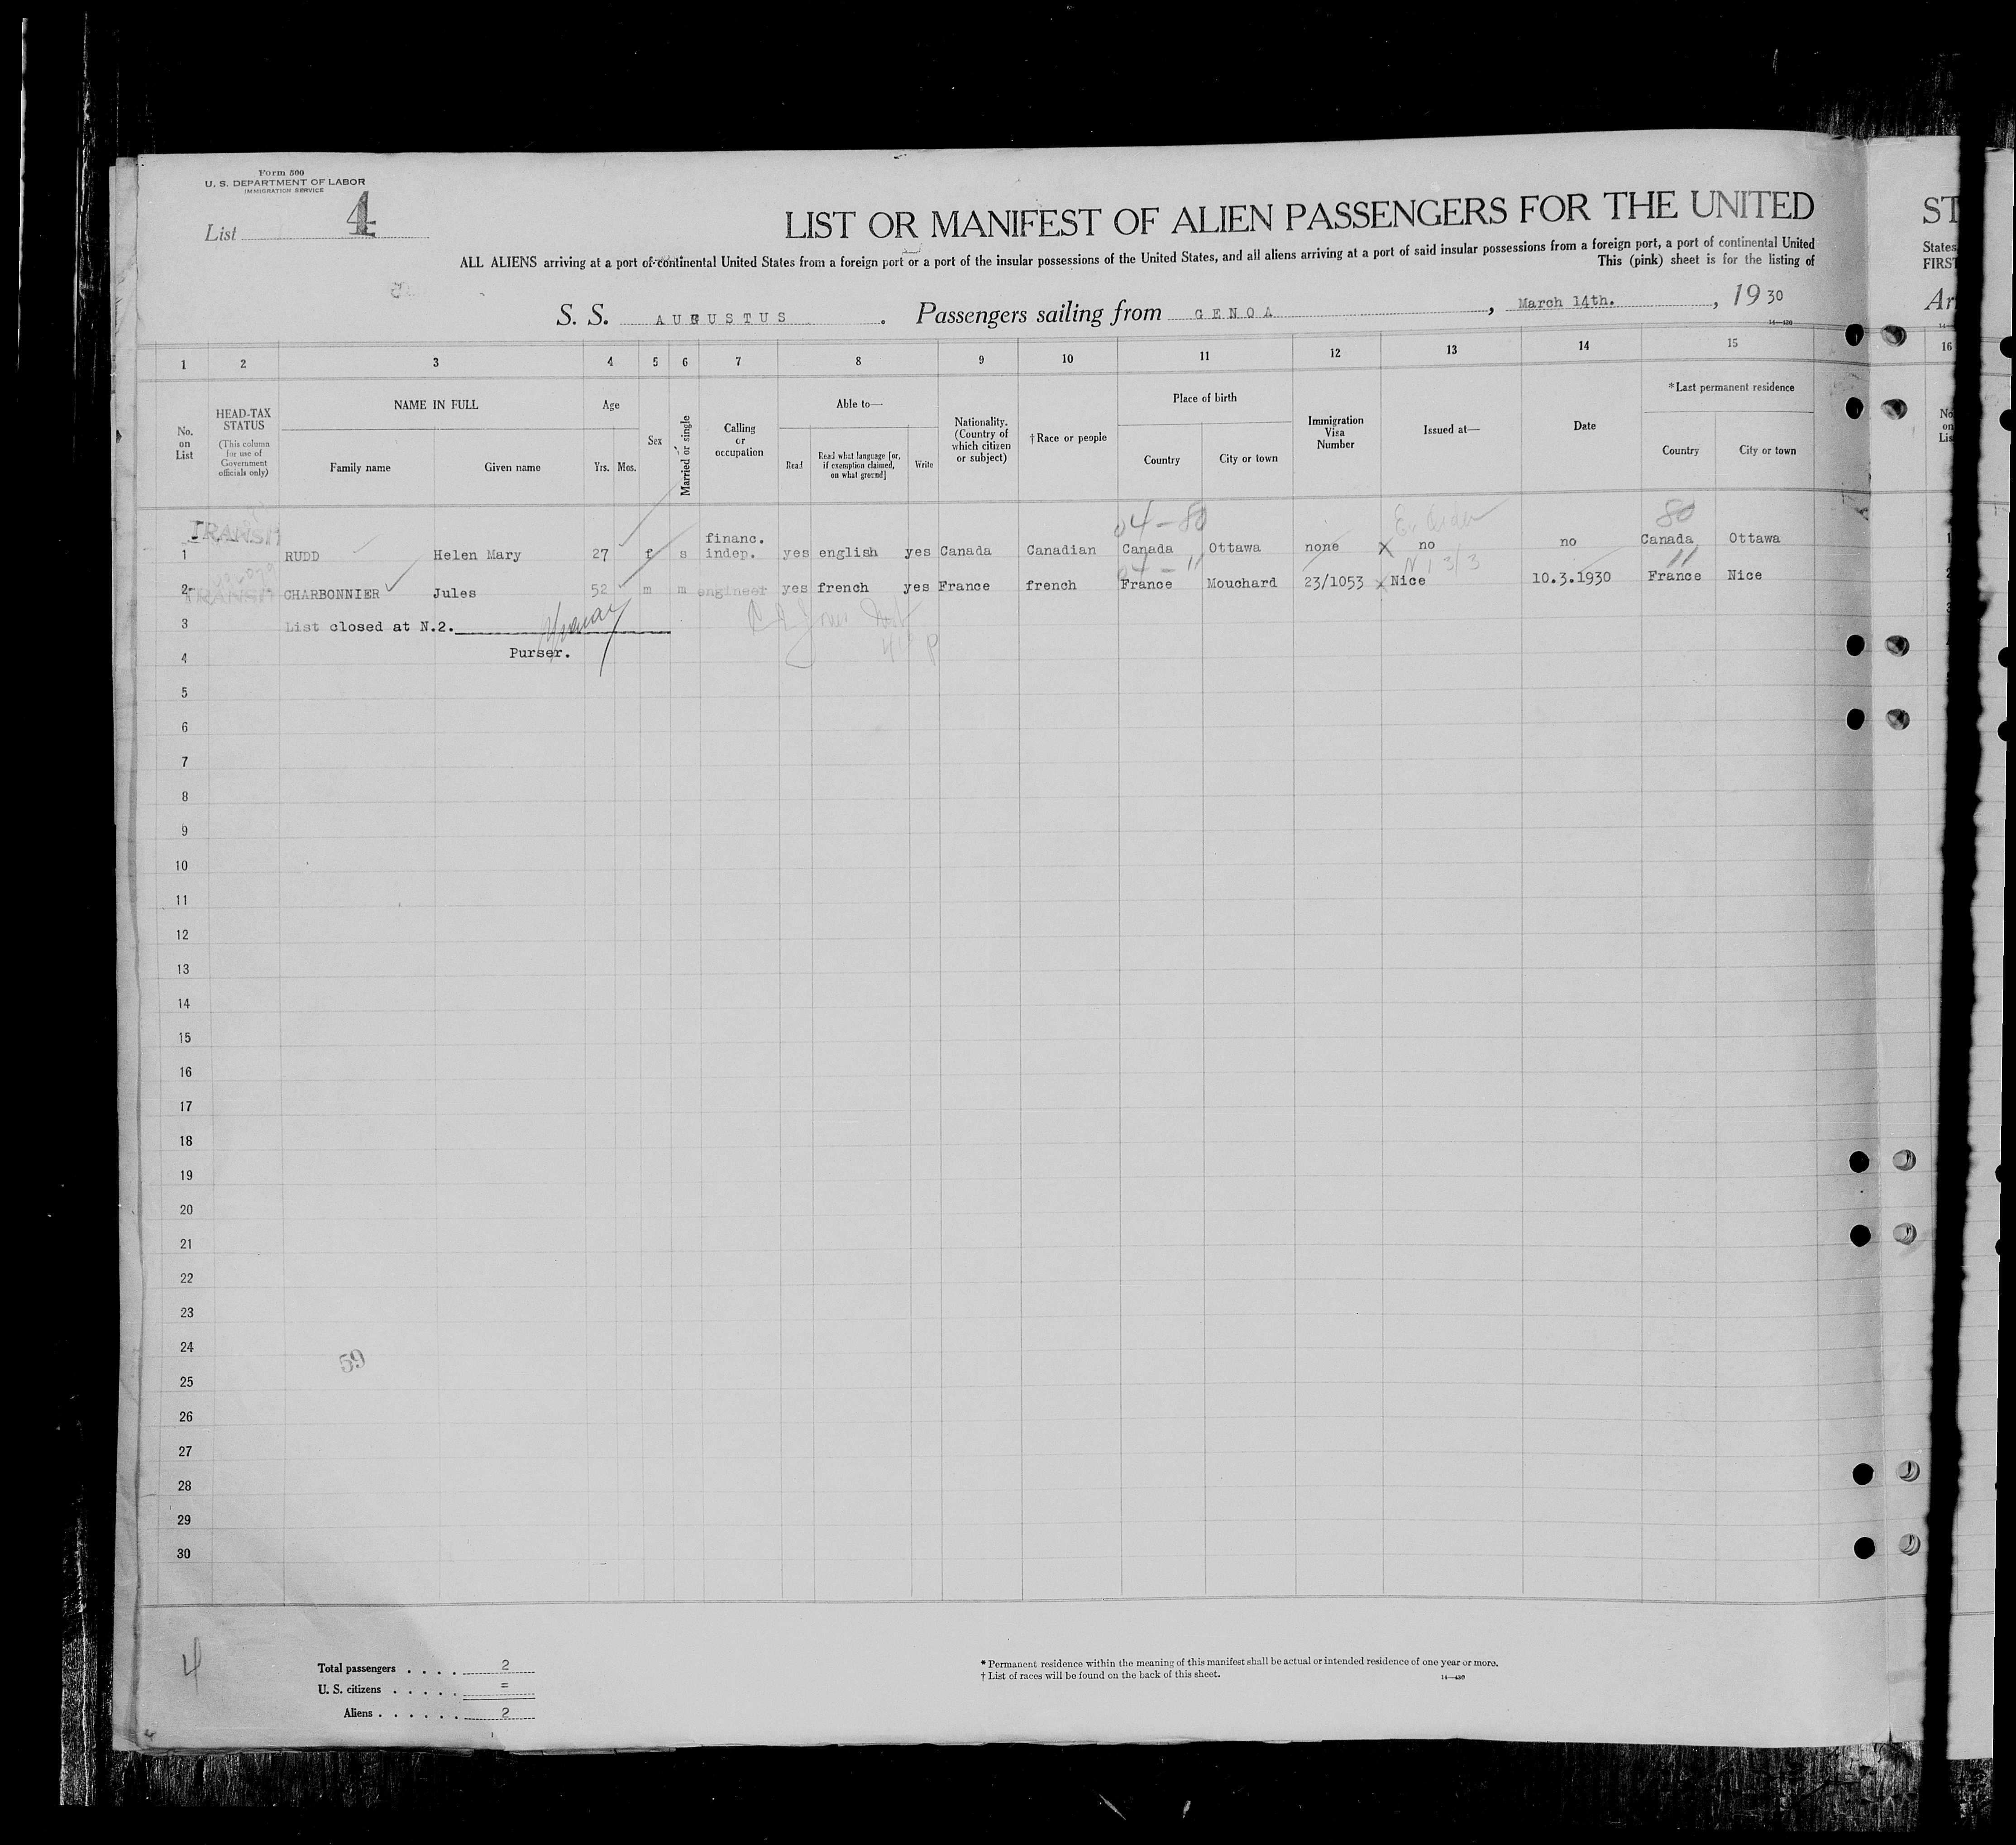 Form 500
U. S. DEPARTMENT OF LABOR
IMMIGRATION SERVICE
List 4
LIST OR MANIFEST OF ALIEN PASSENGERS FOR THE UNITED
ST
ALL ALIENS arriving at a port of continental United States from a foreign port or a port of the insular possessions of the United States, and all aliens arriving at a port of said insular possessions from a foreign port, a port of continental United
States
This (pink) sheet is for the listing of
FIRST
S. S. AUGUSTUS . Passengers sailing from GENOA , March 14th. , 19 30
Ar
14—430
1 2 3 4 5 6 7 8 9 10 11 12 13 14 15 16
No. on List
HEAD-TAX STATUS
(This column for use of Government officials only)
NAME IN FULL
Family name
Given name
Age
Yrs. Mos.
Sex
Married or single
Calling or occupation
Able to—
Read
Read what language [or, if exemption claimed, on what ground]
Write
Nationality. (Country of which citizen or subject)
† Race or people
Place of birth
Country
City or town
Immigration Visa Number
Issued at—
Date
*Last permanent residence
Country
City or town
No. on List
04-80 80
TRANSIT
1 RUDD Helen Mary 27 f s financ. indep. yes english yes Canada Canadian Canada Ottawa none X no no Canada Ottawa
04 - 11 N I 3/3 11
TRANSIT
2 CHARBONNIER Jules 52 m m engineer yes french yes France french France Mouchard 23/1053 X Nice 10.3.1930 France Nice
3 List closed at N.2.
4 Purser.
5
6
7
8
9
10
11
12
13
14
15
16
17
18
19
20
21
22
23
24
59
25
26
27
28
29
30
4
Total passengers . . . . 2
U. S. citizens . . . . . =
Aliens . . . . . . 2
* Permanent residence within the meaning of this manifest shall be actual or intended residence of one year or more.
† List of races will be found on the back of this sheet.
14—430